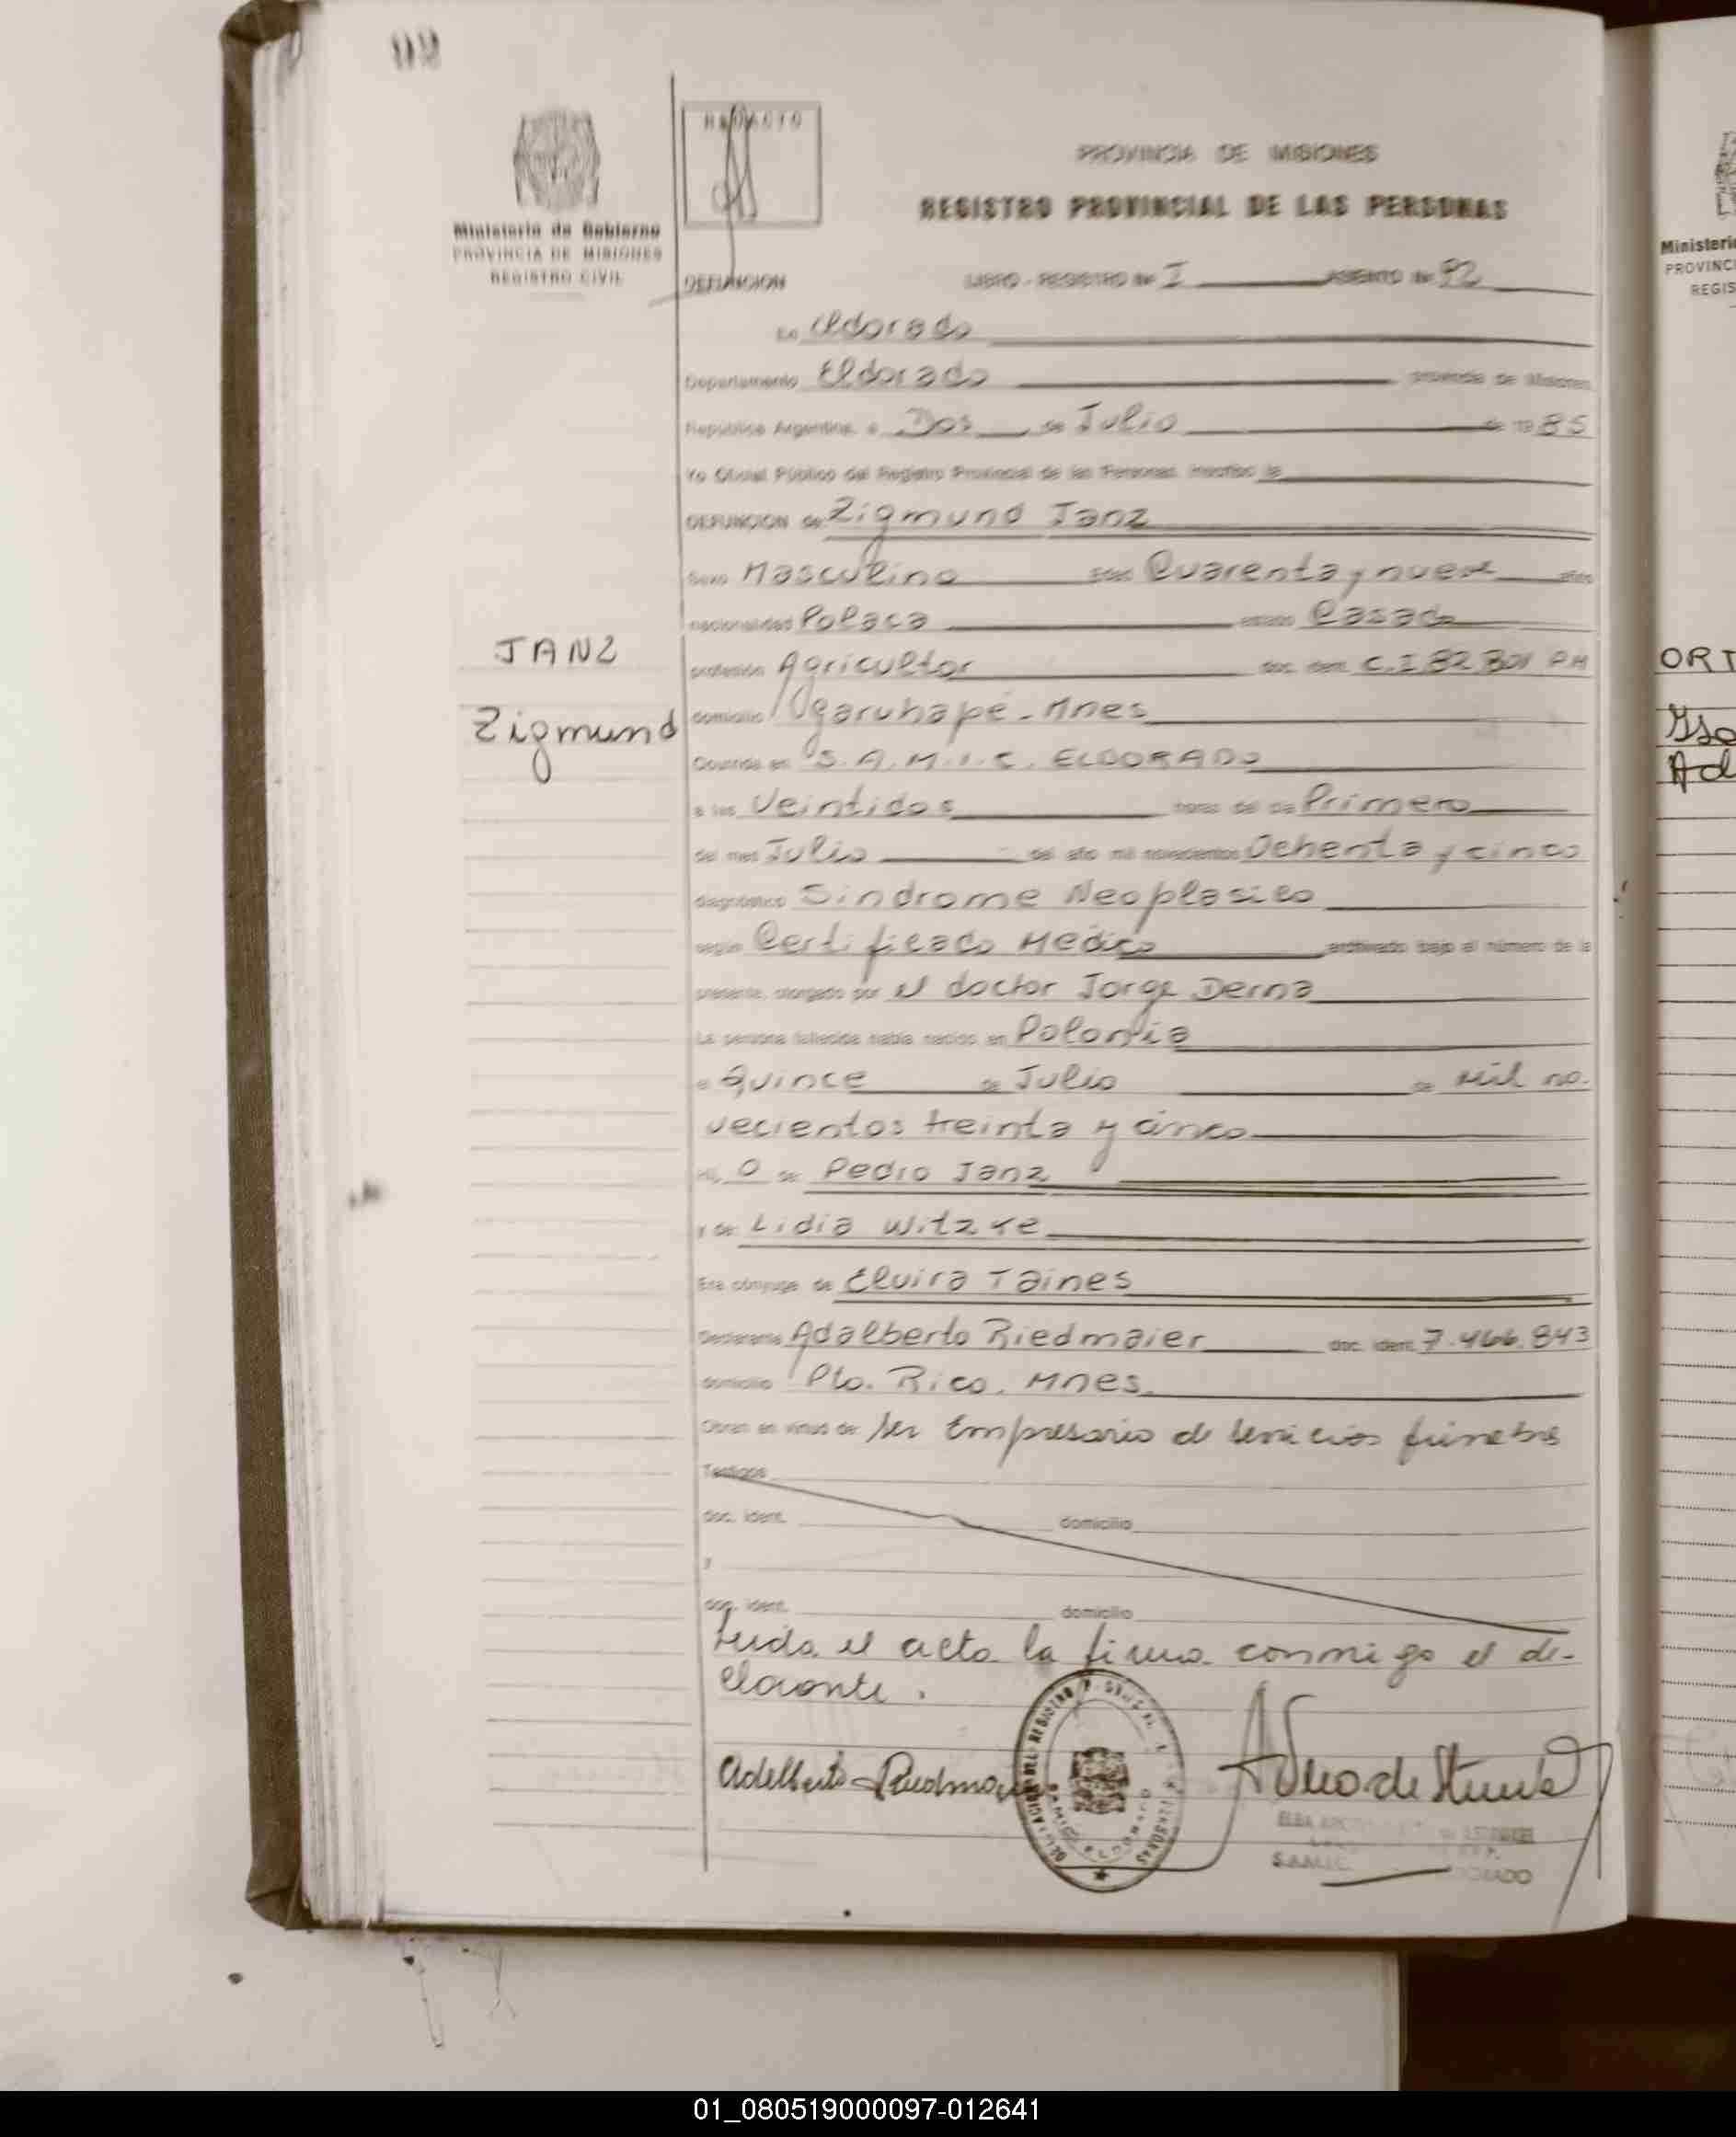 92
Ministerio de Gobierno
PROVINCIA DE MISIONES
REGISTRO CIVIL
PROVINCIA DE MISIONES
REGISTRO PROVINCIAL DE LAS PERSONAS
DEFUNCION LIBRO - REGISTRO No I ASIENTO No 92
En Eldorado
Departamento Eldorado provincia de Misiones
República Argentina, a Dos de Julio de 1985
Yo Oficial Público del Registro Provincial de las Personas, inscribo la
DEFUNCION de Zigmund Janz
Sexo Masculino Edad Cuarenta y nueve años
nacionalidad Polaca estado Casado
JANZ
profesión Agricultor doc. ident. C.I 82.301 PM
Zigmund
domicilio Ogaruhapé - Mnes
Ocurrida en S.A.M.I.C. ELDORADO
a las Veintidos horas del día Primero
del mes Julio del año mil novecientos Ochenta y cinco
diagnóstico Sindrome Neoplasico
según Certificado Medico archivado bajo el número de la
presente, otorgado por el doctor Jorge Derna
La persona fallecida había nacido en Polonia
a Quince de Julio de Mil no-
vecientos treinta y cinco
Hij O de Pedro Janz
y de Lidia Witzke
Era cónyuge de Elvira Taines
Declarante Adalberto Riedmaier doc. ident. 7.466.843
domicilio Pto. Rico. Mnes.
Obran en virtud de ser Empresario de servicios fúnebres
Testigos
doc. ident. domicilio
y
doc. ident. domicilio
Leida el acta la firma conmigo el de-
clarante.
Adelberto Riedmaier
S.A.M.I.C.
ORT
Ministeri
PROVINC
REGIS
01_080519000097-012641